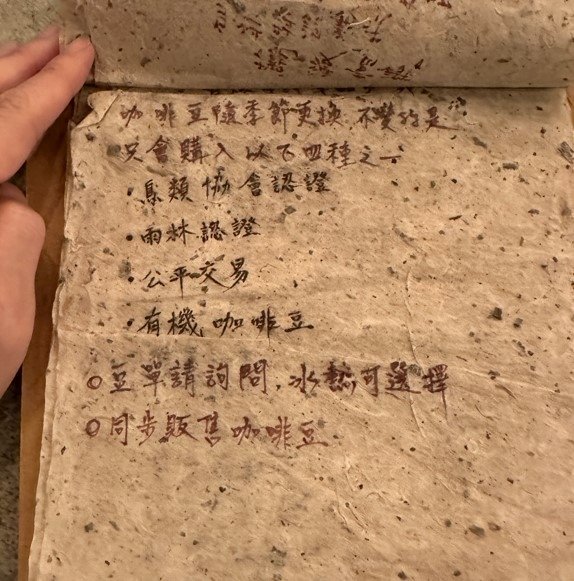 咖啡豆隨季節更換 不變的是
只會購入以下四種之一
·鳥類協會認證
·雨林認證
·公平交易
·有機咖啡豆
○豆單請詢問，冰熱可選擇
○同步販售咖啡豆